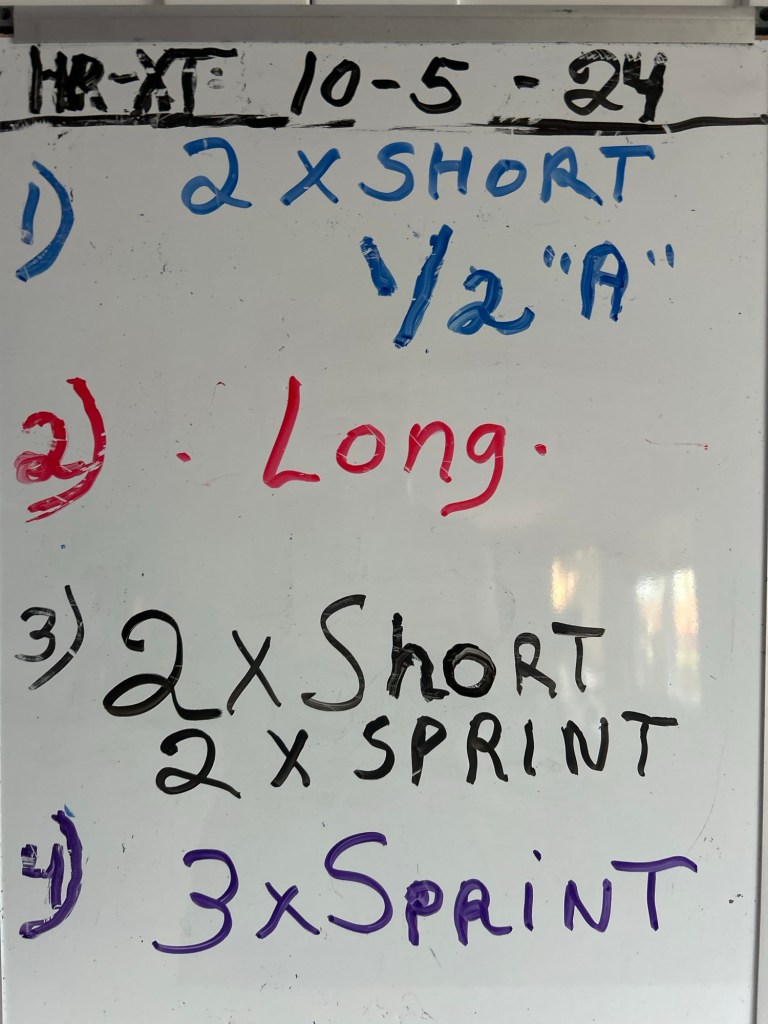 HR-XT: 10-5-24
1) 2 X SHORT
1/2 "A"
2) · Long ·
3) 2 x ShoRT
2 X SPRINT
4) 3 x SPRiNT